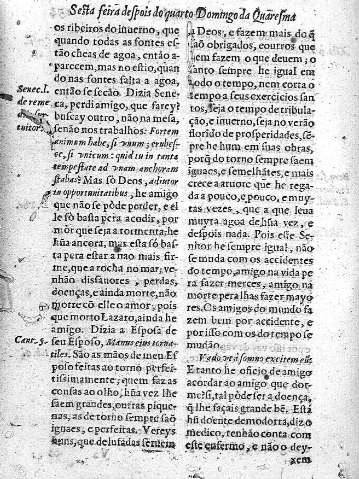 Sesta feira despois do quarto Domingo da Quaresma
os ribeiros do inuerno, que
quando todas as fontes es-
tão cheas de agoa, então a-
parecem, mas no estio, quan-
do nas fontes falta a agoa,
então se secão. Dizia Sene-
ca, perdi amigo, que farey?
buscay outro, não na mesa,
senão nos trabalhos: Fortem
animum habe, si vnum; erubes-
ce, si vnicum: quid tu in tanta
tempestate ad vnam anchoram
stabas? Mas só Deos, adiutor
in opportunitatibus, he amigo
que não se póde perder, e el
le só basta pera acodir, por
mòr que seja a tormenta; he
hũa ancora, mas esta só bas-
ta pera estar a nao mais fir-
me, que a rocha no mar; ve-
nhão dissauores, perdas,
doenças, e ainda morte, não
morre cò elle o amor, pois
que morto Lazaro, ainda he
amigo. Dizia a Esposa de
seu Esposo, Manus eius torna-
tiles. São as mãos de meu Es
poso feitas ao torno perfei-
tissimamente; quem faz as
cousas ao olho, hũa vez lhe
saem grandes, outras pique-
nas, as de torno sempre saõ
iguaes, e perfeitas. Vereys
hũns, que de lusadas seruem
Senec. l.
de reme
tuitor.
Cant. 5.
a Deos, e fazem mais do q̃
saõ obrigados, e outros que
nem fazem o que deuem; o
santo sempre he igual em
todo o tempo, nem corta o
tempo a seus exercicios san-
tos, seja o tempo de tribula-
ção, e inuerno, seja no verão
florido de prosperidades, sẽ-
pre he hum em suas obras,
porq̃ do torno sempre saem
iguaes, e semelhãtes, e mais
crece a aruore que he rega-
da a pouco, e pouco, e muy-
tas vezes, que a que leua
muyta agoa de hũa vez, e
despois nada. Pois este Se-
nhor he sempre igual, não
se muda com os accidentes
do tempo, amigo na vida pe
ra fazer merces, amigo na
morte pera lhas fazer mayo
res. Os amigos do mundo fa
zem bem por accidente, e
por isso com os do tempo se
mudão.
Vado vt à somno excitem eũ.
E tanto he oficio de amigo
acordar ao amigo que dor-
me: si, tal póde ser a doença,
q̃ lhe façais grande bẽ. Està
hũ doente de modorra, diz o
medico, tenhão conta com
este enfermo, e não o dey-
xem